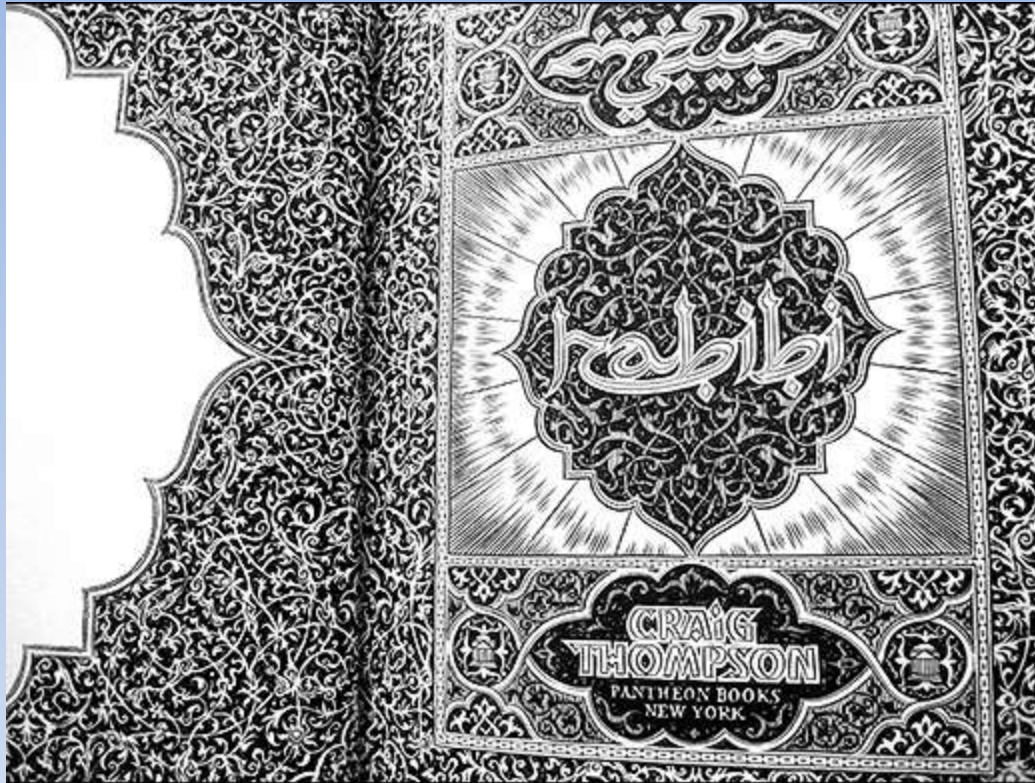 حبيبي
habibi
CRAiG
THOMPSON
PANTHEON BOOKS
NEW YORK